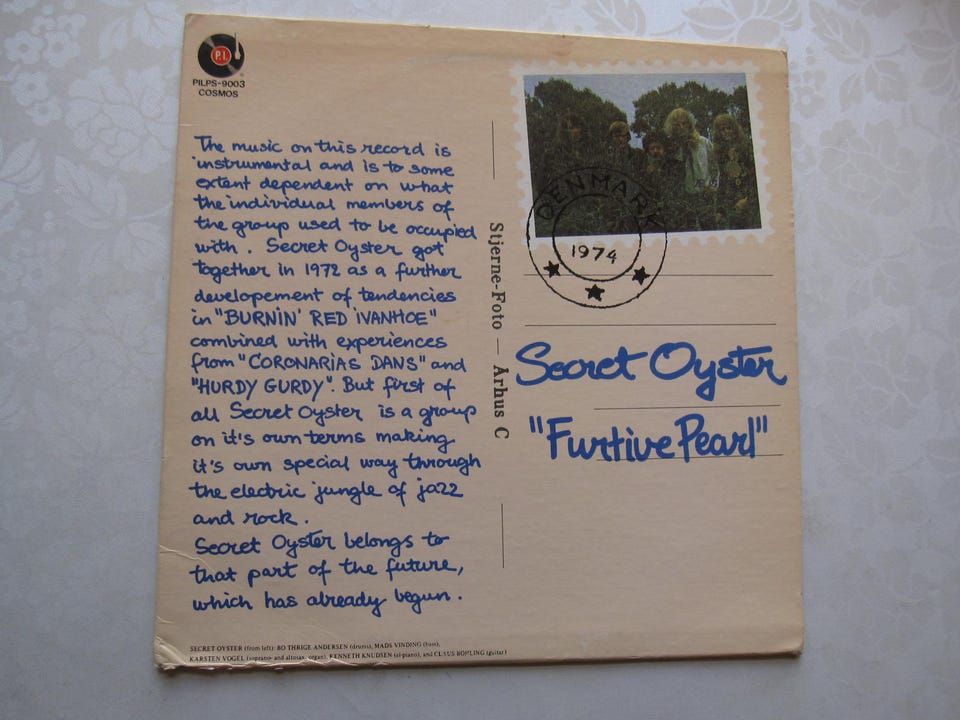 P.I.
PILPS-9003
COSMOS
The music on this record is
instrumental and is to some
extent dependent on what
the individual members of
the group used to be occupied
with. Secret Oyster got
together in 1972 as a further
developement of tendencies
in "BURNIN' RED IVANHOE"
combined with experiences
from "CORONARIAS DANS" and
"HURDY GURDY". But first of
all Secret Oyster is a group
on it's own terms making
it's own special way through
the electric jungle of jazz
and rock.
Secret Oyster belongs to
that part of the future,
which has already begun.
SECRET OYSTER (from left): BO THRIGE ANDERSEN (drums), MADS VINDING (bass),
KARSTEN VOGEL (soprano- and altosax, organ), KENNETH KNUDSEN (el-piano), and CLAUS BØHLING (guitar)
Stjerne-Foto — Århus C
DENMARK
1974
Secret Oyster
"Furtive Pearl"